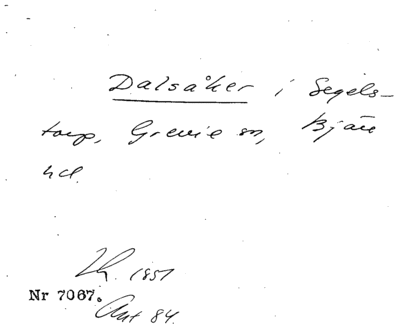 Dalsåker i Segels-
torp, Grevie sn, Bjäre
hd.
Lh. 1851
Nr 7067.
Ant 84.